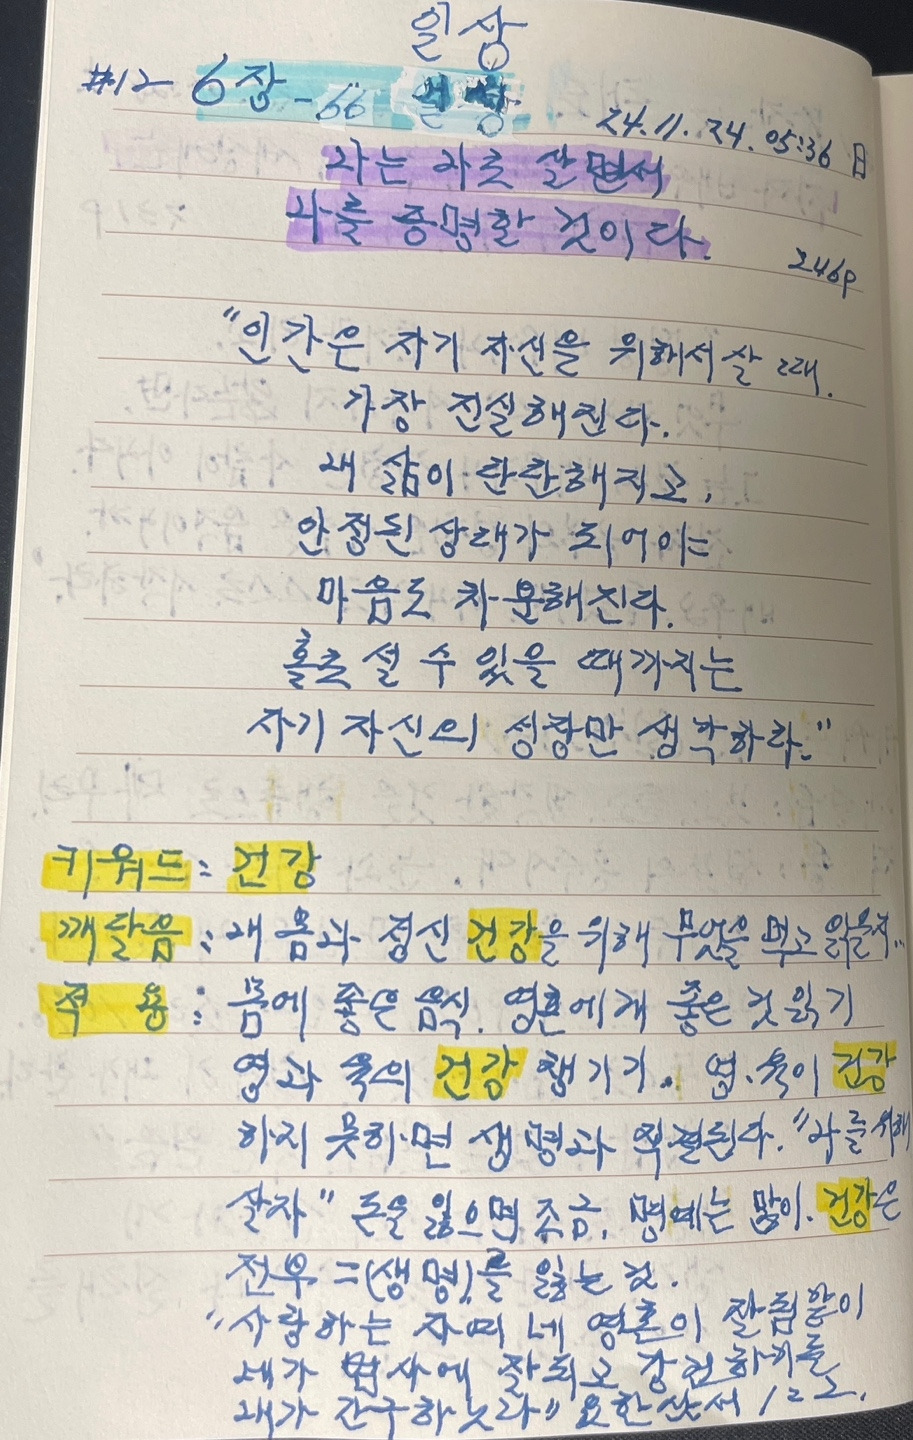 일상
#12- 6장 - 66 일상
24.11.24. 05:36 日
나는 나로 살면서
나를 증명할 것이다.
246p
"인간은 자기 자신을 위해서 살 때.
가장 진실해진다.
내 삶이 탄탄해지고,
안정된 상태가 되어야
마음도 차분해진다.
홀로 설 수 있을 때까지는
자기 자신의 성장만 생각하라."
키워드 : 건강
깨달음 : 내 몸과 정신 건강을 위해 무엇을 먹고 읽을지..
적 용 : 몸에 좋은 음식. 영혼에게 좋은 것 읽기
영과 육의 건강 챙기기. 영.육이 건강
하지 못하면 생명과 직결된다. "나를 위해
살자" 돈을 잃으면 조금, 명예는 많이. 건강은
전부 =(생명)를 잃는 것.
"사랑하는 자여 네 영혼이 잘됨같이
네가 범사에 잘되고 강건하기를
내가 간구하노라" 요한삼서 1:2